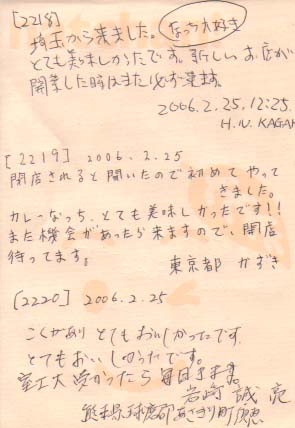 [2218]
埼玉から来ました。なっち大好き
とても美味しかったです。新しいお店が
開業した時はまた必ず来ます。
2006.2.25.12:25
H.U. KAGA
[2219] 2006.2.25
閉店されると聞いたので初めてやって
きました。
カレーなっち、とても美味しかったです!!
また機会があったら来ますので、開店
待ってます。
東京都 かずき
[2220] 2006.2.25
こくがあり とてもおいしかったです
とてもおいしかったです。
室工大受かったら毎日きます。
岩崎 誠亮
熊本県球磨郡あさぎり町